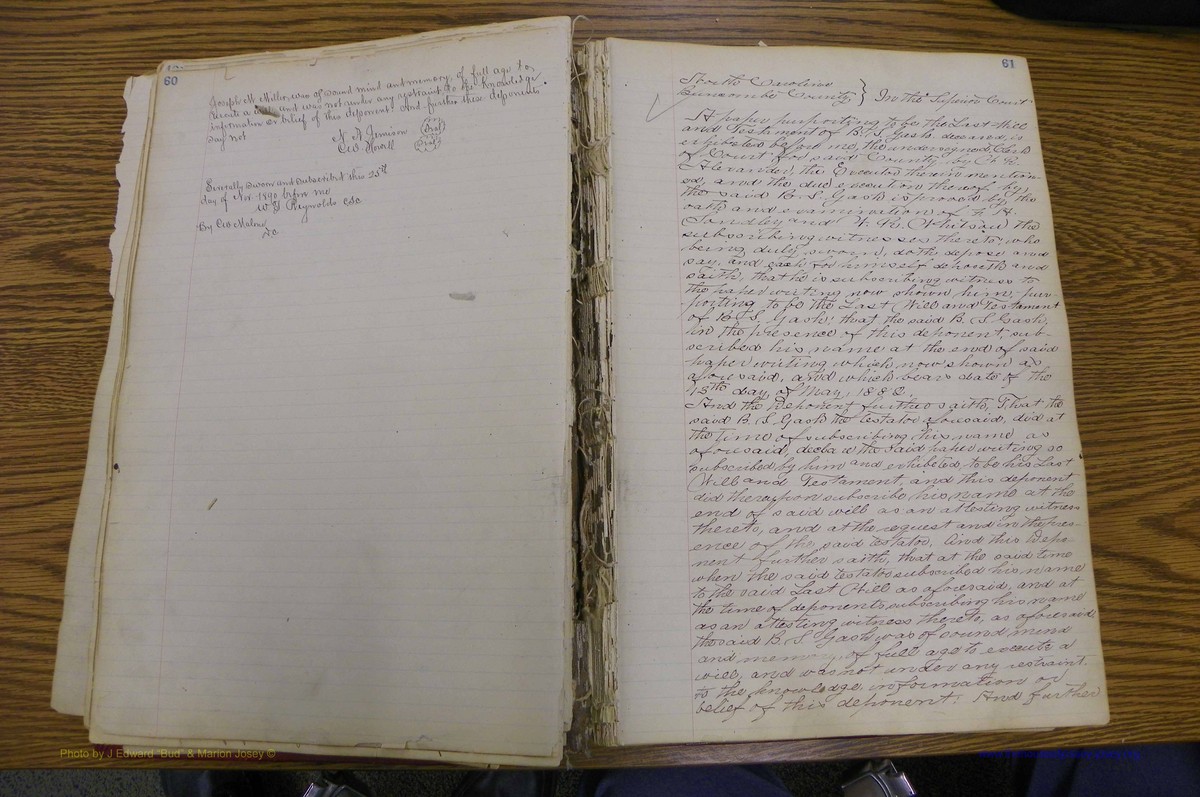 60
Joseph M. Miller, was of sound mind and memory, of full age to
execute a will, and was not under any restraint to the knowledge
information or belief of this deponent: And further these deponents
say not
Jamison (Seal)
Geo. Howell (Seal)
Severally sworn and subscribed this 25th
day of Nov 1890 before me
W. T. Reynolds CSC
By
D.C.
61
North Carolina
Buncombe County } In the Superior Court
A paper purporting to be the Last Will
and Testament of B. S. Gash, deceased, is
exhibited before me, the undersigned, Clerk
of Court for said County, by
Alexander, the Executor therein mention-
ed, and the due execution thereof by
the said B. S. Gash is proved by the
oath and examination of F. A.
Sondley and W. R. Whitson the
subscribing witnesses thereto; who
being duly sworn, doth depose and
say, and each for himself deposeth and
saith, that he is subscribing witness to
the paper writing now shown him, pur-
porting to be the Last Will and Testament
of B. S. Gash; that the said B. S. Gash,
in the presence of this deponent, sub-
scribed his name at the end of said
paper writing which now shown as
aforesaid, and which bears date of the
15th day of May, 1882.
And the Deponent further saith, That the
said B. S. Gash the testator aforesaid, did at
the time of subscribing his name as
aforesaid, declare the said paper writing so
subscribed by him and exhibited, to be his Last
Will and Testament, and this deponent
did thereupon subscribe his name at the
end of said will as an attesting witness
thereto, and at the request and in the pres-
ence of the said testator. And this Depo-
nent further saith, that at the said time
when the said testator subscribed his name
to the said Last Will as aforesaid, and at
the time of deponents subscribing his name
as an attesting witness thereto, as aforesaid
the said B. S. Gash was of sound mind
and memory, of full age to execute a
will, and was not under any restraint,
to the knowledge, information or
belief of this deponent: And further
Photo by J Edward "Bud" & Marion Josey ©